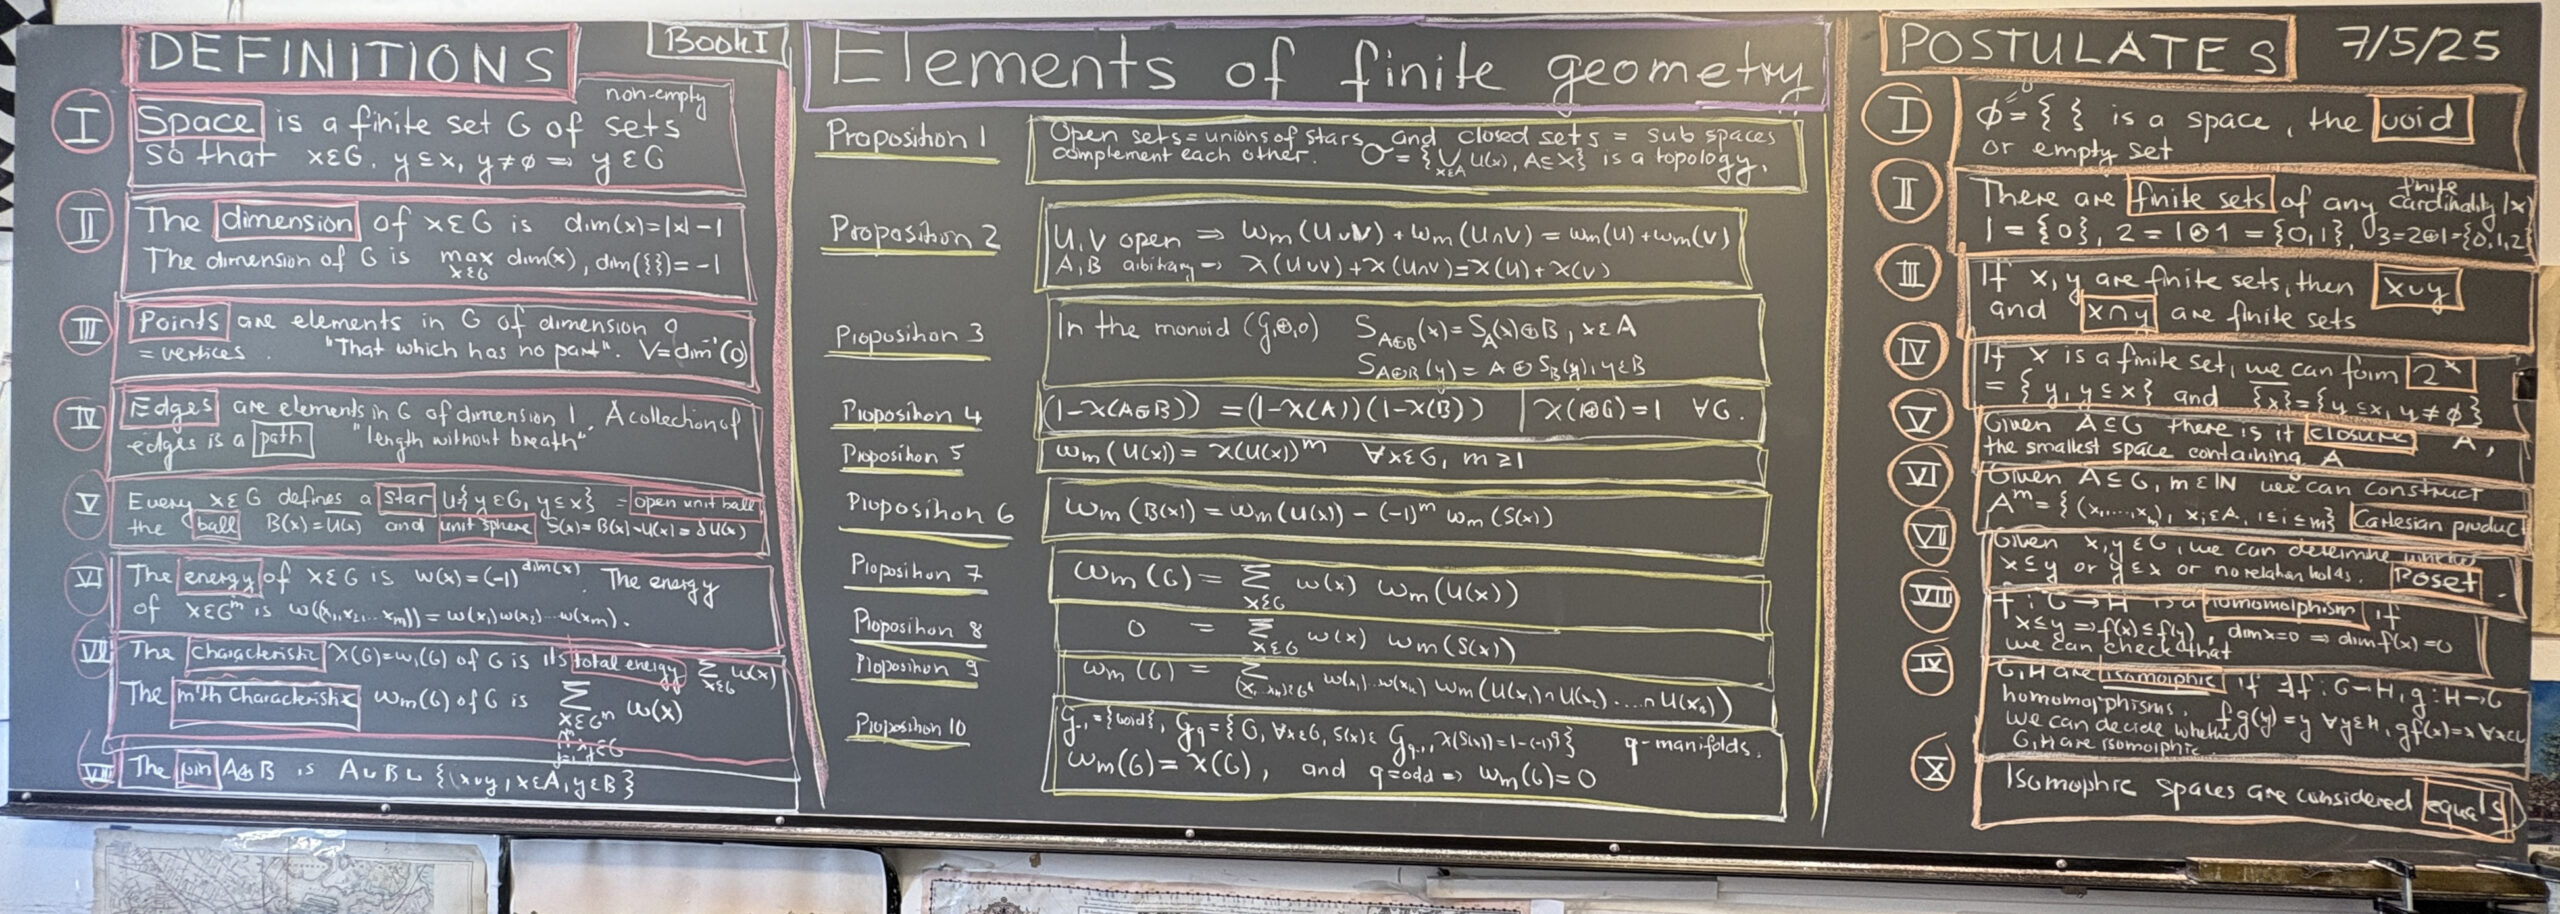 DEFINITIONS
Book I
I
non-empty
Space is a finite set G of sets
so that x∈G, y⊆x, y≠∅ ⇒ y∈G
II
The dimension of x∈G is dim(x)=|x|-1
The dimension of G is max x∈G dim(x), dim({})=-1
III
Points are elements in G of dimension 0
= vertices. "That which has no part". V=dim⁻¹(0)
IV
Edges are elements in G of dimension 1. A collection of
edges is a path "length without breath".
V
Every x∈G defines a star U={y∈G, y⊆x} = open unit ball
the ball B(x)=U(x) and unit sphere S(x)=B(x)-U(x)=δU(x)
VI
The energy of x∈G is w(x)=(-1)^dim(x). The energy
of x∈G^m is w((x₁,x₂,...x_m))=w(x₁)w(x₂)...w(x_m).
VII
The characteristic χ(G)=w₁(G) of G is its total energy Σ x∈G w(x)
The m'th Characteristic w_m(G) of G is Σ x∈G^m w(x)
∩ x_j∈G
VIII
The join A⊕B is A∪B∪{x∪y, x∈A, y∈B}
Elements of finite geometry
Proposition 1
Open sets = unions of stars and closed sets = sub spaces
complement each other. O={∪ x∈A U(x), A⊆X} is a topology.
Proposition 2
U,V open ⇒ w_m(U∪V)+w_m(U∩V)=w_m(U)+w_m(V)
A,B arbitrary ⇒ χ(U∪V)+χ(U∩V)=χ(U)+χ(V)
Proposition 3
In the monoid (G,⊕,0) S_A⊕B(x)=S_A(x)⊕B, x∈A
S_A⊕B(y)=A⊕S_B(y), y∈B
Proposition 4
(1-χ(A⊕B))=(1-χ(A))(1-χ(B)) | χ(1⊕G)=1 ∀G.
Proposition 5
w_m(U(x))=χ(U(x))^m ∀x∈G, m≥1
Proposition 6
w_m(B(x))=w_m(U(x))-(-1)^m w_m(S(x))
Proposition 7
w_m(G)=Σ x∈G w(x) w_m(U(x))
Proposition 8
0 = Σ x∈G w(x) w_m(S(x))
Proposition 9
w_m(G)=Σ (x₁,...x_k)∈G^k w(x₁)...w(x_k) w_m(U(x₁)∩U(x₂)....∩U(x_k))
Proposition 10
G₋₁={void}, G_q={G, ∀x∈G, S(x)∈G_q-1, χ(S(x))=1-(-1)^q} q-manifolds.
w_m(G)=χ(G), and q=odd ⇒ w_m(G)=0
POSTULATES
7/5/25
I
∅={ } is a space, the void
or empty set
II
There are finite sets of any finite cardinality |x|
1={0}, 2=1⊕1={0,1}, 3=2⊕1={0,1,2}
III
If x,y are finite sets, then x∪y
and x∩y are finite sets
IV
If x is a finite set, we can form 2^x
={y, y⊆x} and {x}={y⊆x, y≠∅}
V
Given A⊆G there is it closure A,
the smallest space containing A
VI
Given A⊆G, m∈ℕ we can construct
A^m={(x₁,...,x_m), x_i∈A, 1≤i≤m} Cartesian product
VII
Given x,y∈G, we can determine whether
x⊆y or y⊆x or no relation holds. Poset.
VIII
f: G→H is a homomorphism if
x⊆y ⇒ f(x)⊆f(y), dim x=0 ⇒ dim f(x)=0
we can check that
IX
G,H are isomorphic if ∃f:G→H, g:H→G
homomorphisms, fg(y)=y ∀y∈H, gf(x)=x ∀x∈G
we can decide whether
G,H are isomorphic
X
Isomophic spaces are considered equals